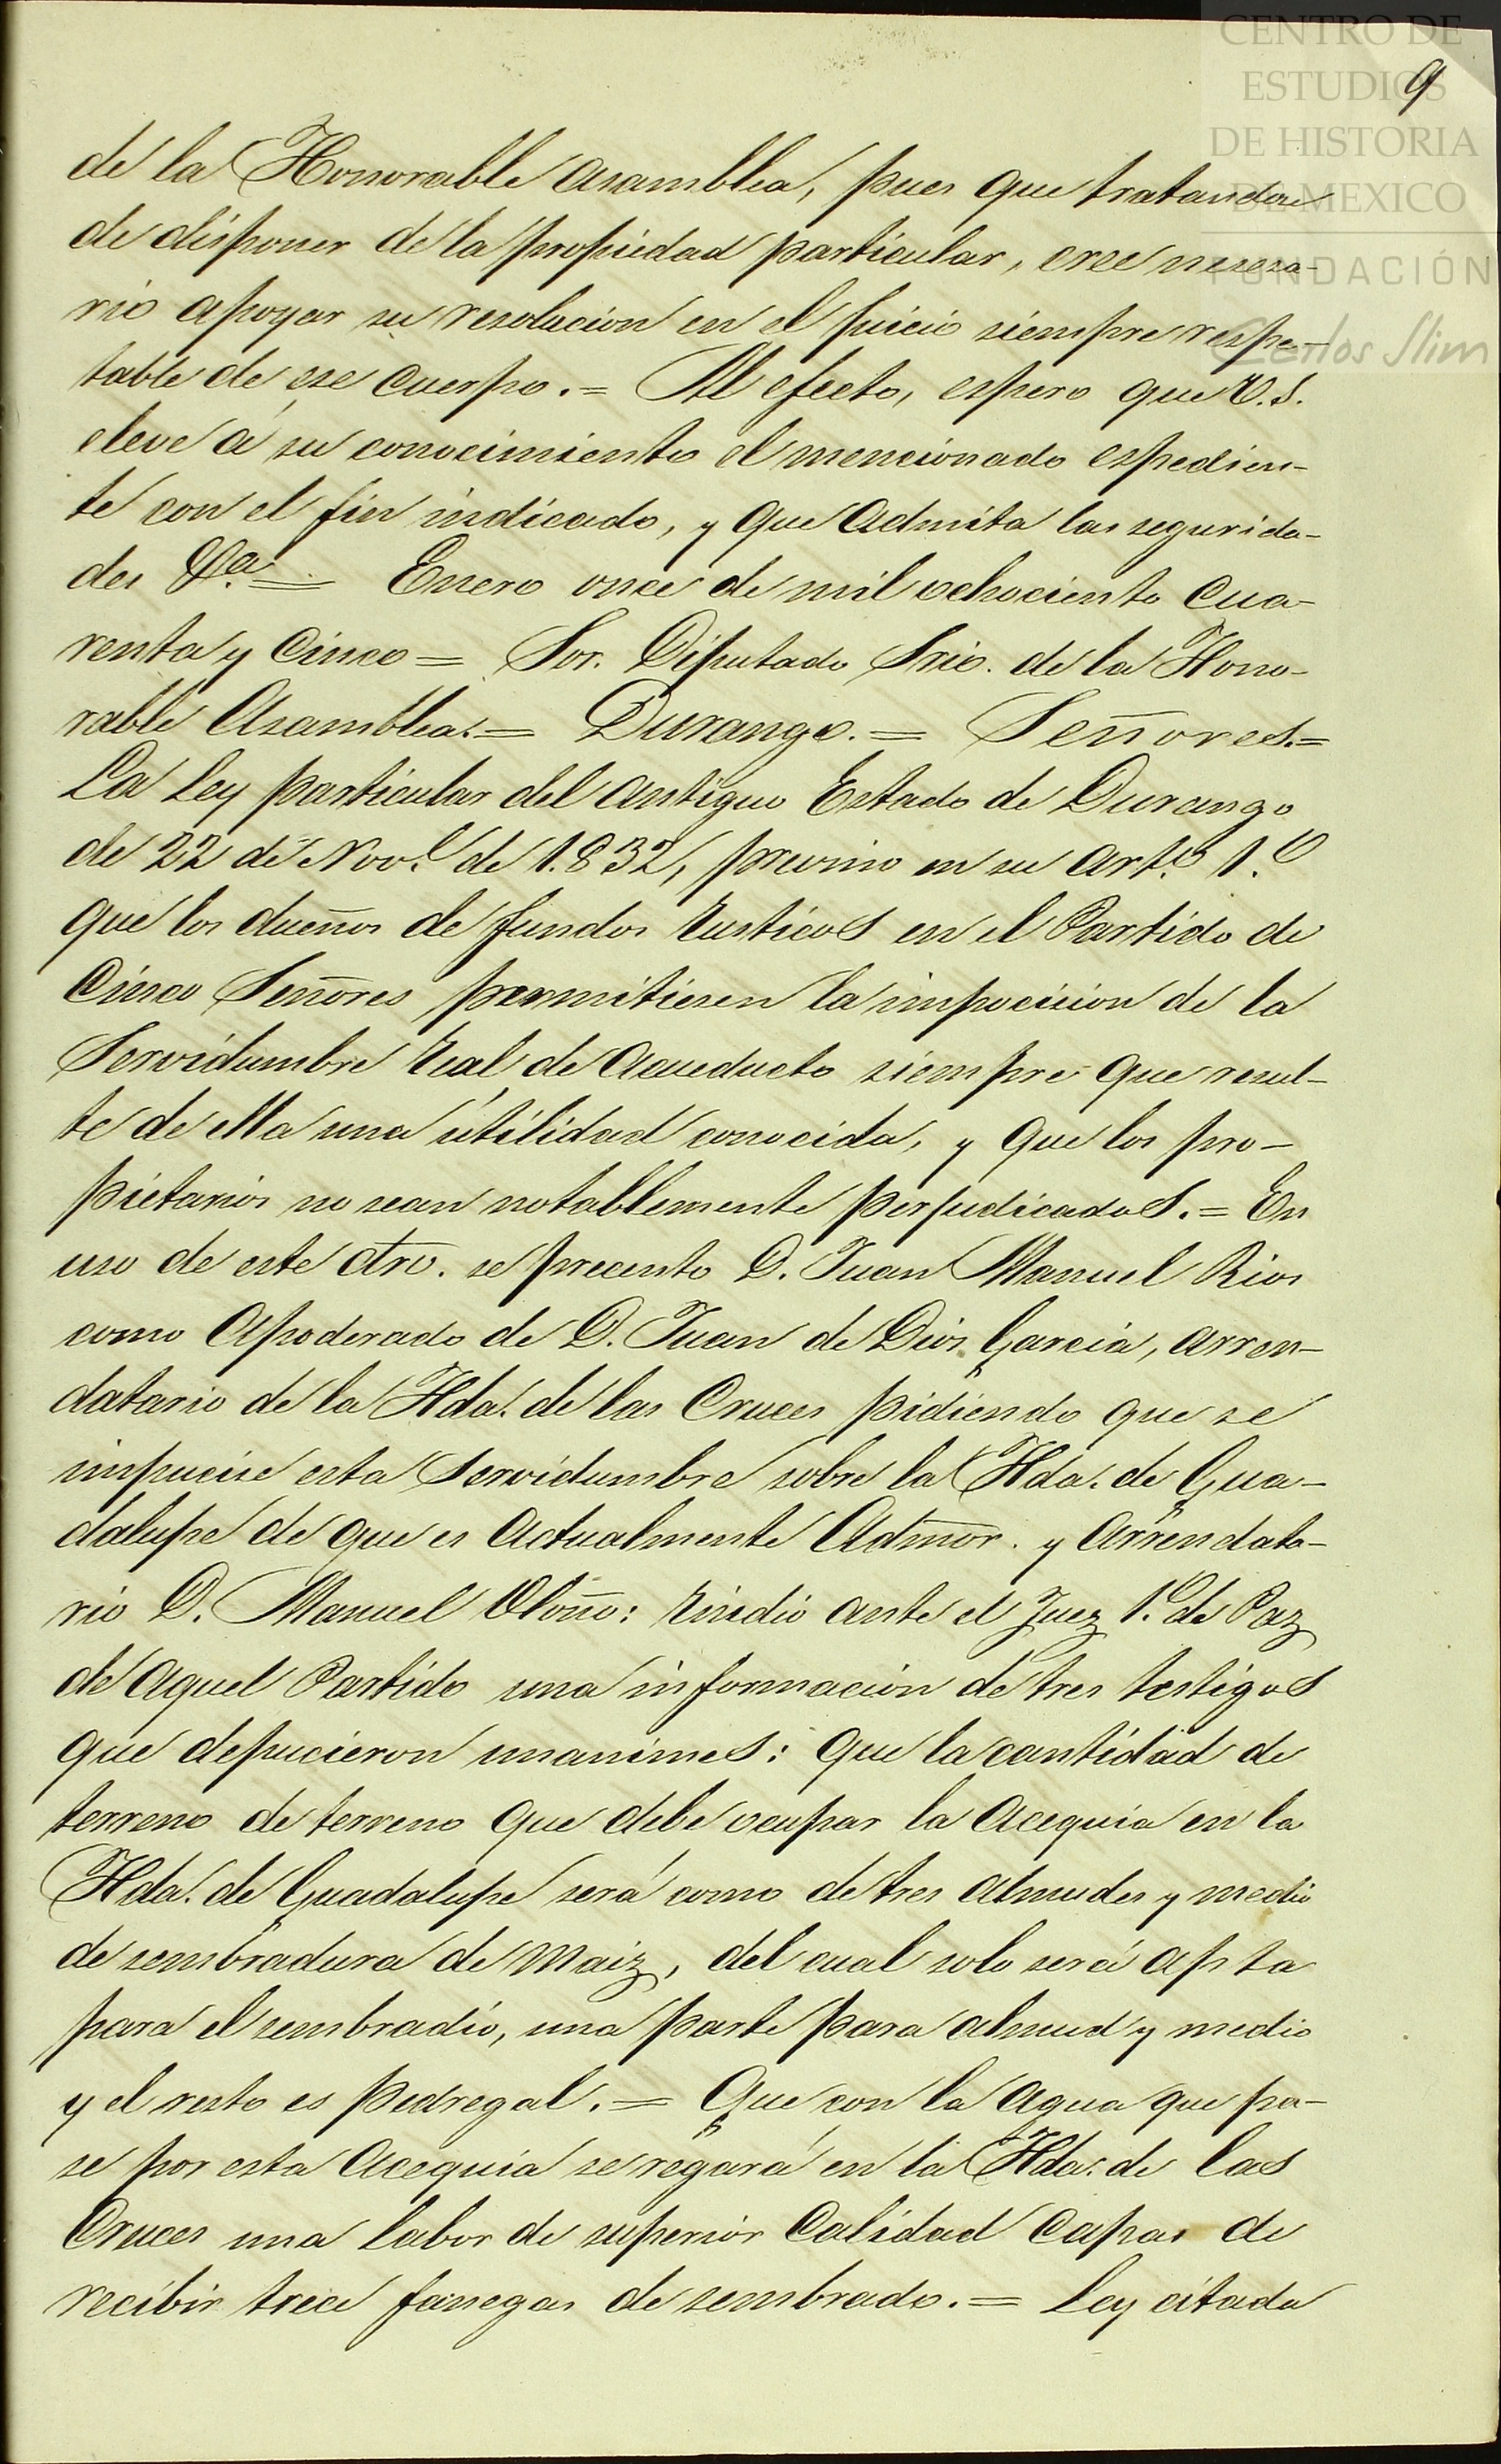 CENTRO DE
ESTUDIOS
DE HISTORIA
DE MEXICO
FUNDACIÓN
Carlos Slim
9
de la Honorable asamblea, pues que tratandose
de disponer de la propiedad particular, cree necesa-
rio apoyar su resolucion en el juicio siempre respe-
table de ese cuerpo.= Al efecto, espero que V.S.
eleve á su conocimiento el mencionado espedien-
te con el fin indicado, y que admita las segurida-
des &.a= Enero once de mil ochociento cua-
renta y cinco= Sor. Diputado Srio. de la Hono-
rable Asamblea.= Durango.= Señores.=
La Ley particular del antiguo Estado de Durango
de 22 de Nov.e de 1.832, previno en su art.o 1.o
que los dueños de fundos rusticos en el Partido de
Cinco Señores permitiesen la imposicion de la
Servidumbre real de acueducto siempre que resul-
te de ella una útilidad conocida, y que los pro-
pietarios no sean notablemente perjudicados.= En
uso de este dro. se precento D. Juan Manuel Rios
como apoderado de D. Juan de Dios Garcia, arren-
datario de la Hda. de las Cruces pidiendo que se
impuciese esta Servidumbre sobre la Hda. de Gua-
dalupe de que es actualmente Admor. y arrendata-
rio D. Manuel Oloño: rindió ante el Juez 1.o de Paz
de aquel Partido una informacion de tres testigos
que depucieron unanimes: que la cantidad de
terreno de terreno que debe ocupar la acequia en la
Hda. de Guadalupe será como de tres almudes y medio
de sembradura de maiz, del cual solo será apta
para el sembradio, una parte para almud y medio
y el resto es pedregal.= Que con la agua que pa-
se por esta acequia se regará en la Hda. de las
Cruces una labor de superior calidad capas de
recibir trece fanegas de sembrado.= Ley citada